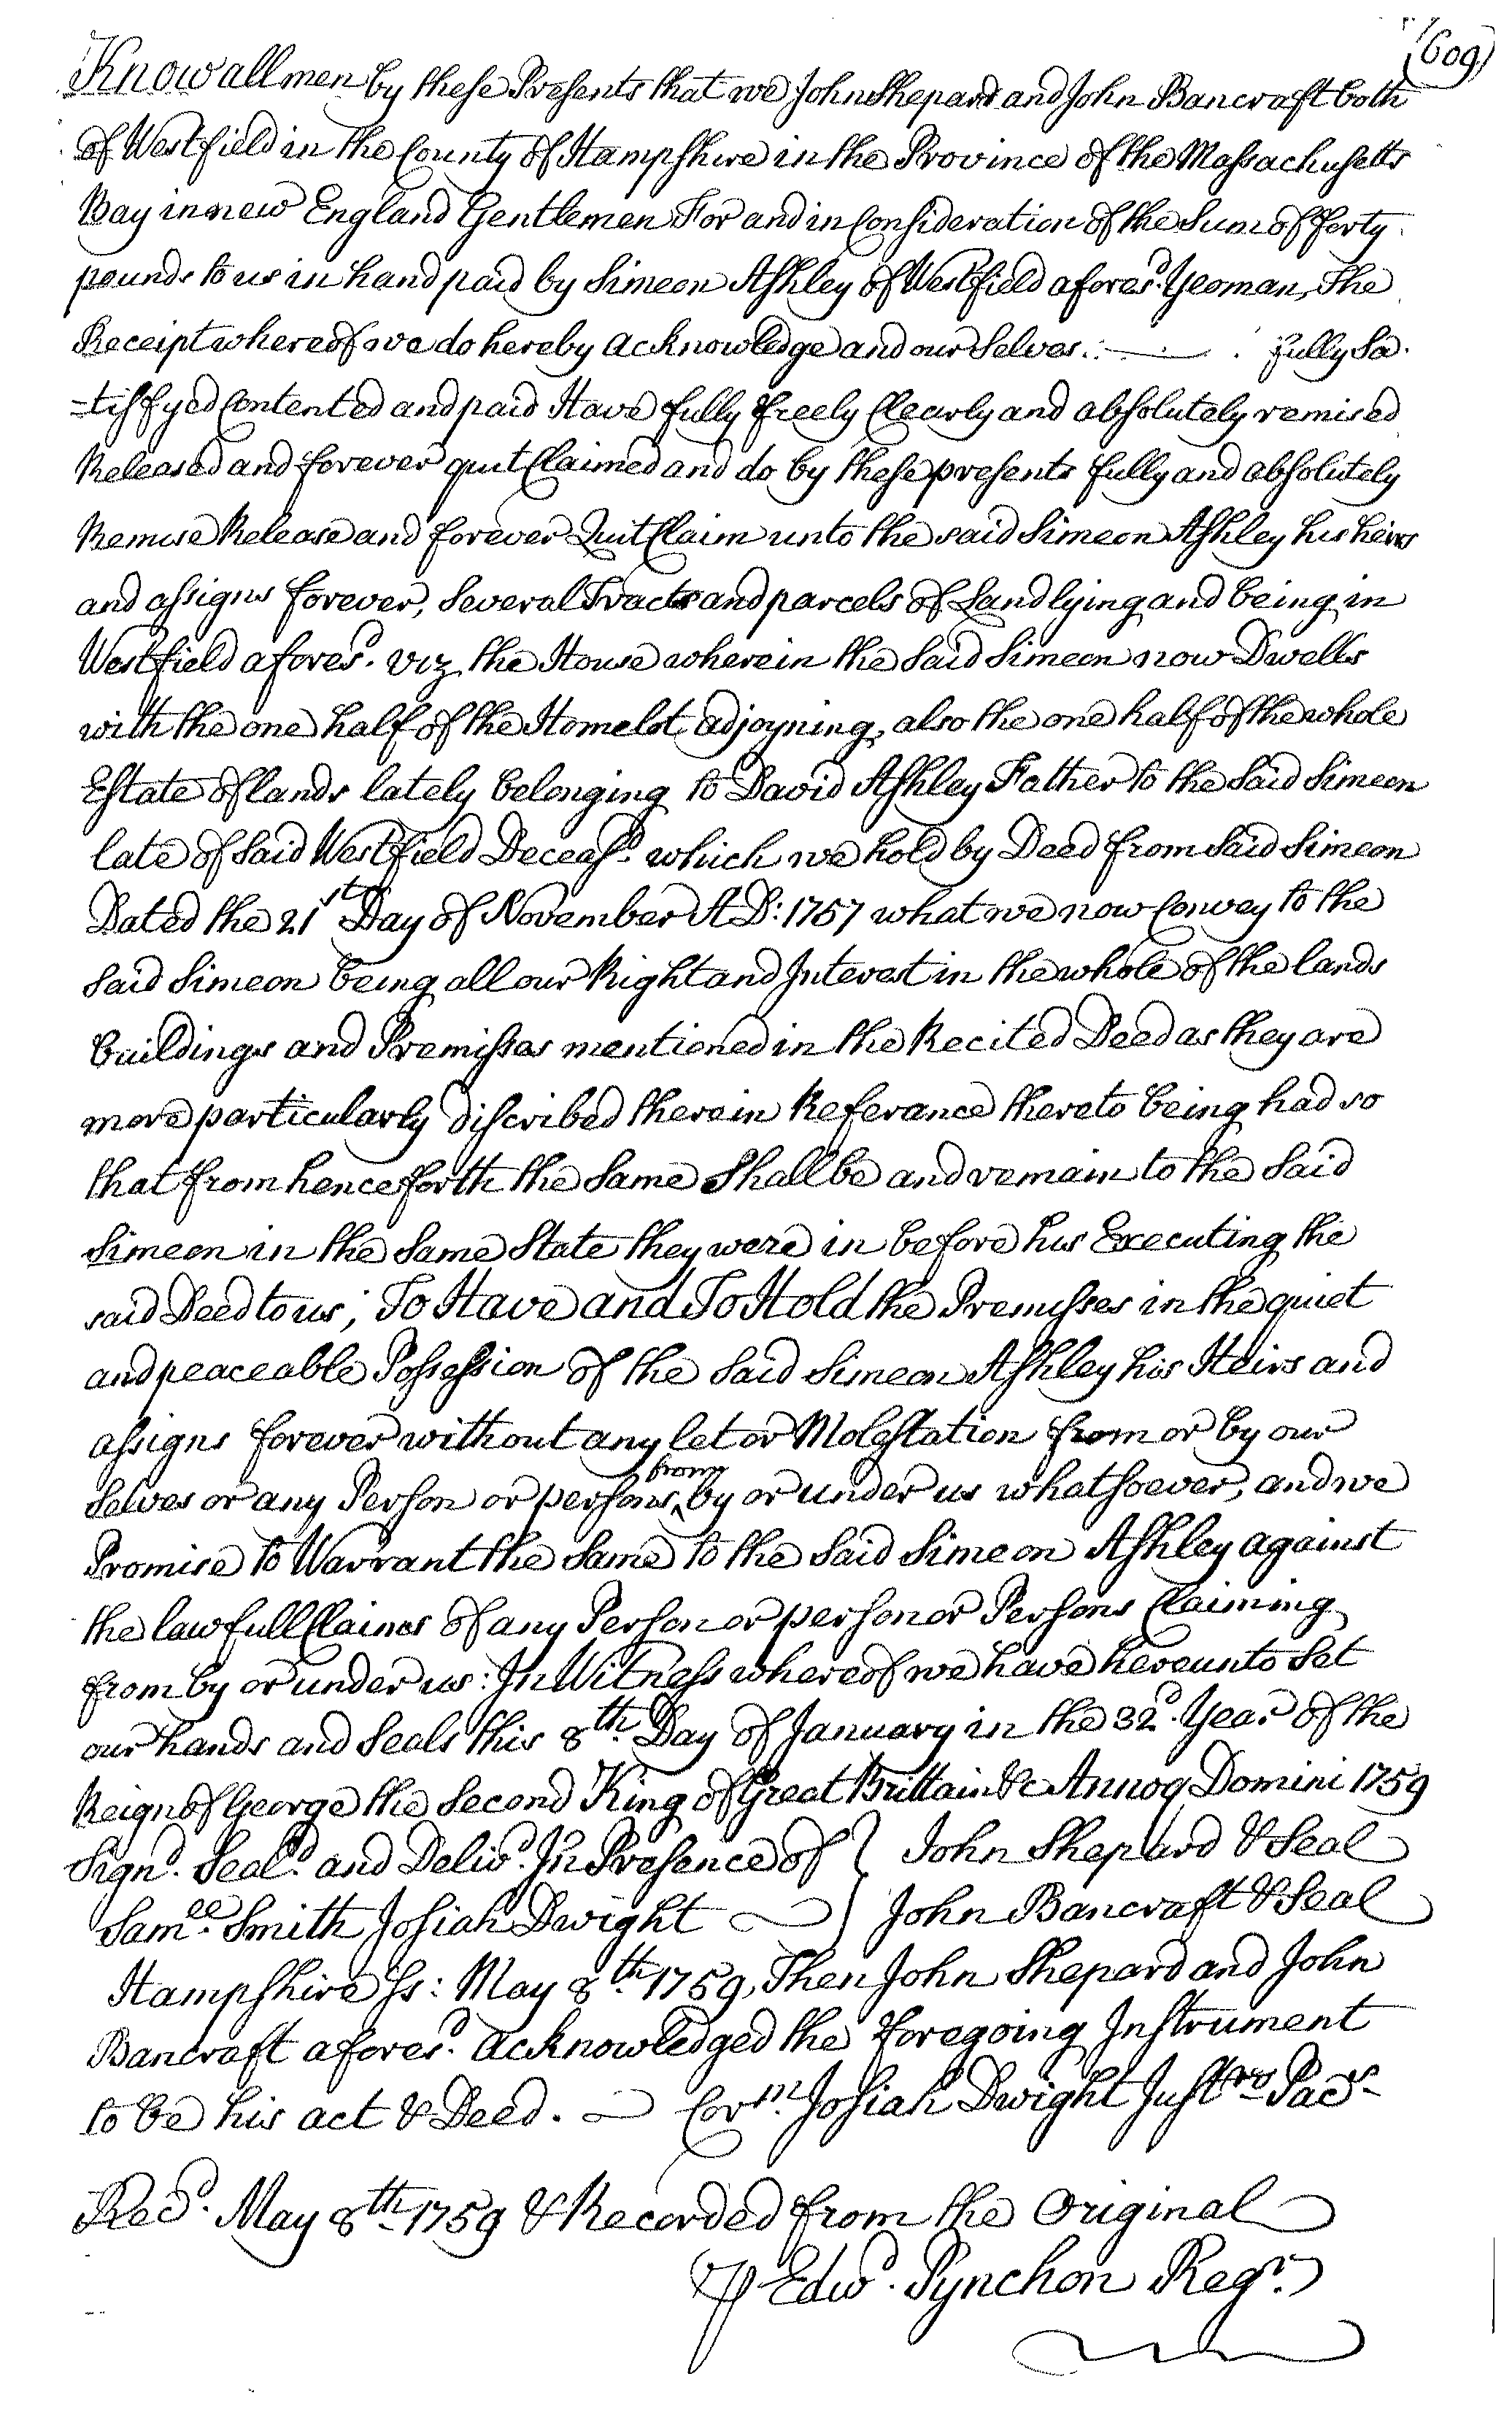 (609)
Know all men by these Presents that we John Shepard and John Bancraft both
of Westfield in the County of Hampshire in the Province of the Massachusetts
Bay in new England Gentlemen For and in Consideration of the Sum of forty
pounds to us in hand paid by Simeon Ashley of Westfield afores.d Yeoman, The
Receipt whereof we do hereby acknowledge and our Selves fully Sa-
=tisfyed Contented and paid Have fully freely Clearly and absolutely remised
Released and forever quit Claimed and do by these presents fully and absolutely
Remise Release and forever Quit Claim unto the said Simeon Ashley his heirs
and assigns forever, Several Tracts and parcels of Land lying and being in
Westfield afores.d viz. the House wherein the Said Simeon now Dwells
with the one half of the Homelot adjoyning, also the one half of the whole
Estate of lands lately belonging to David Ashley Father to the Said Simeon
late of Said Westfield Deceas.d which we hold by Deed from Said Simeon
Dated the 21st Day of November A D: 1757 what we now Convey to the
Said Simeon being all our Right and Interest in the whole of the lands
buildings and Premisses mentioned in the Recited Deed as they are
more particularly discribed therein Referance thereto being had so
that from henceforth the Same Shall be and remain to the Said
Simeon in the Same State they were in before his Executing the
said Deed to us; To Have and To Hold the Premisses in the quiet
and peaceable Possession of the Said Simeon Ashley his Heirs and
assigns forever without any let or Molestation from or by our
Selves or any Person or persons ^from by or under us whatsoever, and we
Promise to Warrant the Same to the Said Simeon Ashley against
the lawfull Claims of any Person or person or Persons Claiming
from by or under us: In Witness whereof we have hereunto Set
our hands and Seals this 8th Day of January in the 32d Year of the
Reign of George the Second King of Great Brittain &c Annoq Domini 1759
Sign.d Seal.d and Deliv.d In Presence of } John Shepard & Seal
Sam.ll Smith Josiah Dwight } John Bancraft & Seal
Hampshire Ss: May 8th 1759, Then John Shepard and John
Bancraft afores.d acknowledged the foregoing Instrument
to be his act & Deed. — Cor.m Josiah Dwight Just.rs Pac.s
Rec.d May 8th 1759 & Recorded from the Original
⅌ Edw.d Pynchon Reg.r